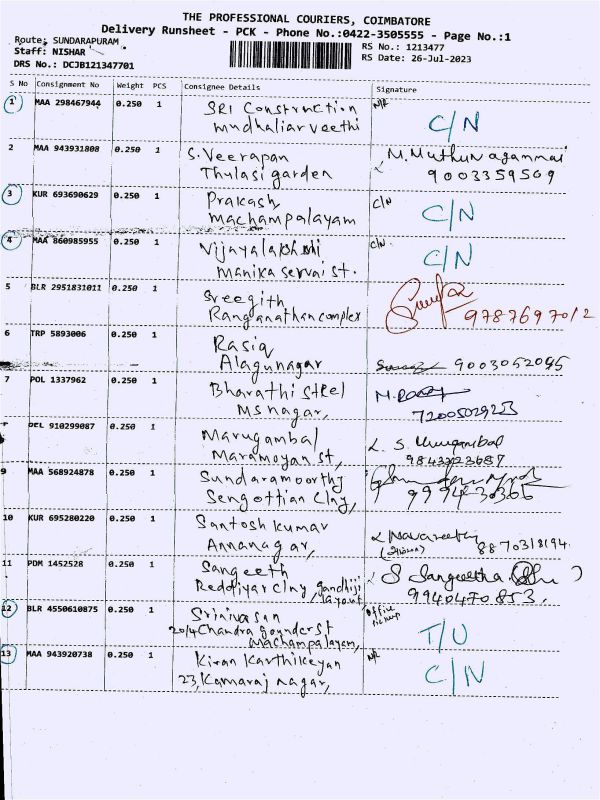 THE PROFESSIONAL COURIERS, COIMBATORE
Delivery Runsheet - PCK - Phone No.:0422-3505555 - Page No.:1
Route: SUNDARAPURAM
Staff: NISHAR
RS No.: 1213477
RS Date: 26-Jul-2023
DRS No.: DCJB121347701
S No Consignment No Weight PCS Consignee Details Signature
1 MAA 298467944 0.250 1 SRI Construction N/R C/N
mudhaliar veethi
2 MAA 943931808 0.250 1 S. Veerapan
Thulasi garden 9003359509
3 KUR 693690629 0.250 1 Prakash C/N C/N
machampalayam
4 MAA 860985955 0.250 1 Vijayalakshmi C/N. C/N
Manika servai st.
5 BLR 2951831011 0.250 1 Sreegith
Ranganathan complex 9787697012
6 TRP 5893006 0.250 1 Rasiq
Alagunagar 9003052095
7 POL 1337962 0.250 1 Bharathi Steel
Ms nagar, 72005029223
DEL 910299087 0.250 1 Marugambal
Maramoyan st,
9 MAA 568924878 0.250 1 Sundaramoorthy
Sengottian Clny,
10 KUR 695280220 0.250 1 Santosh kumar
Annanagar, 8870318194
11 PDM 1452528 0.250 1 Sangeeth S Sangeetha
Reddiyar clny, gandhiji layout 9940470853.
12 BLR 4550610875 0.250 1 Srinivasan office pickup T/U
20/4 Chandra gounder st
Machampalayam,
13 MAA 943920738 0.250 1 Kiran Karthikeyan N/R C/N
23, Kamaraj nagar,